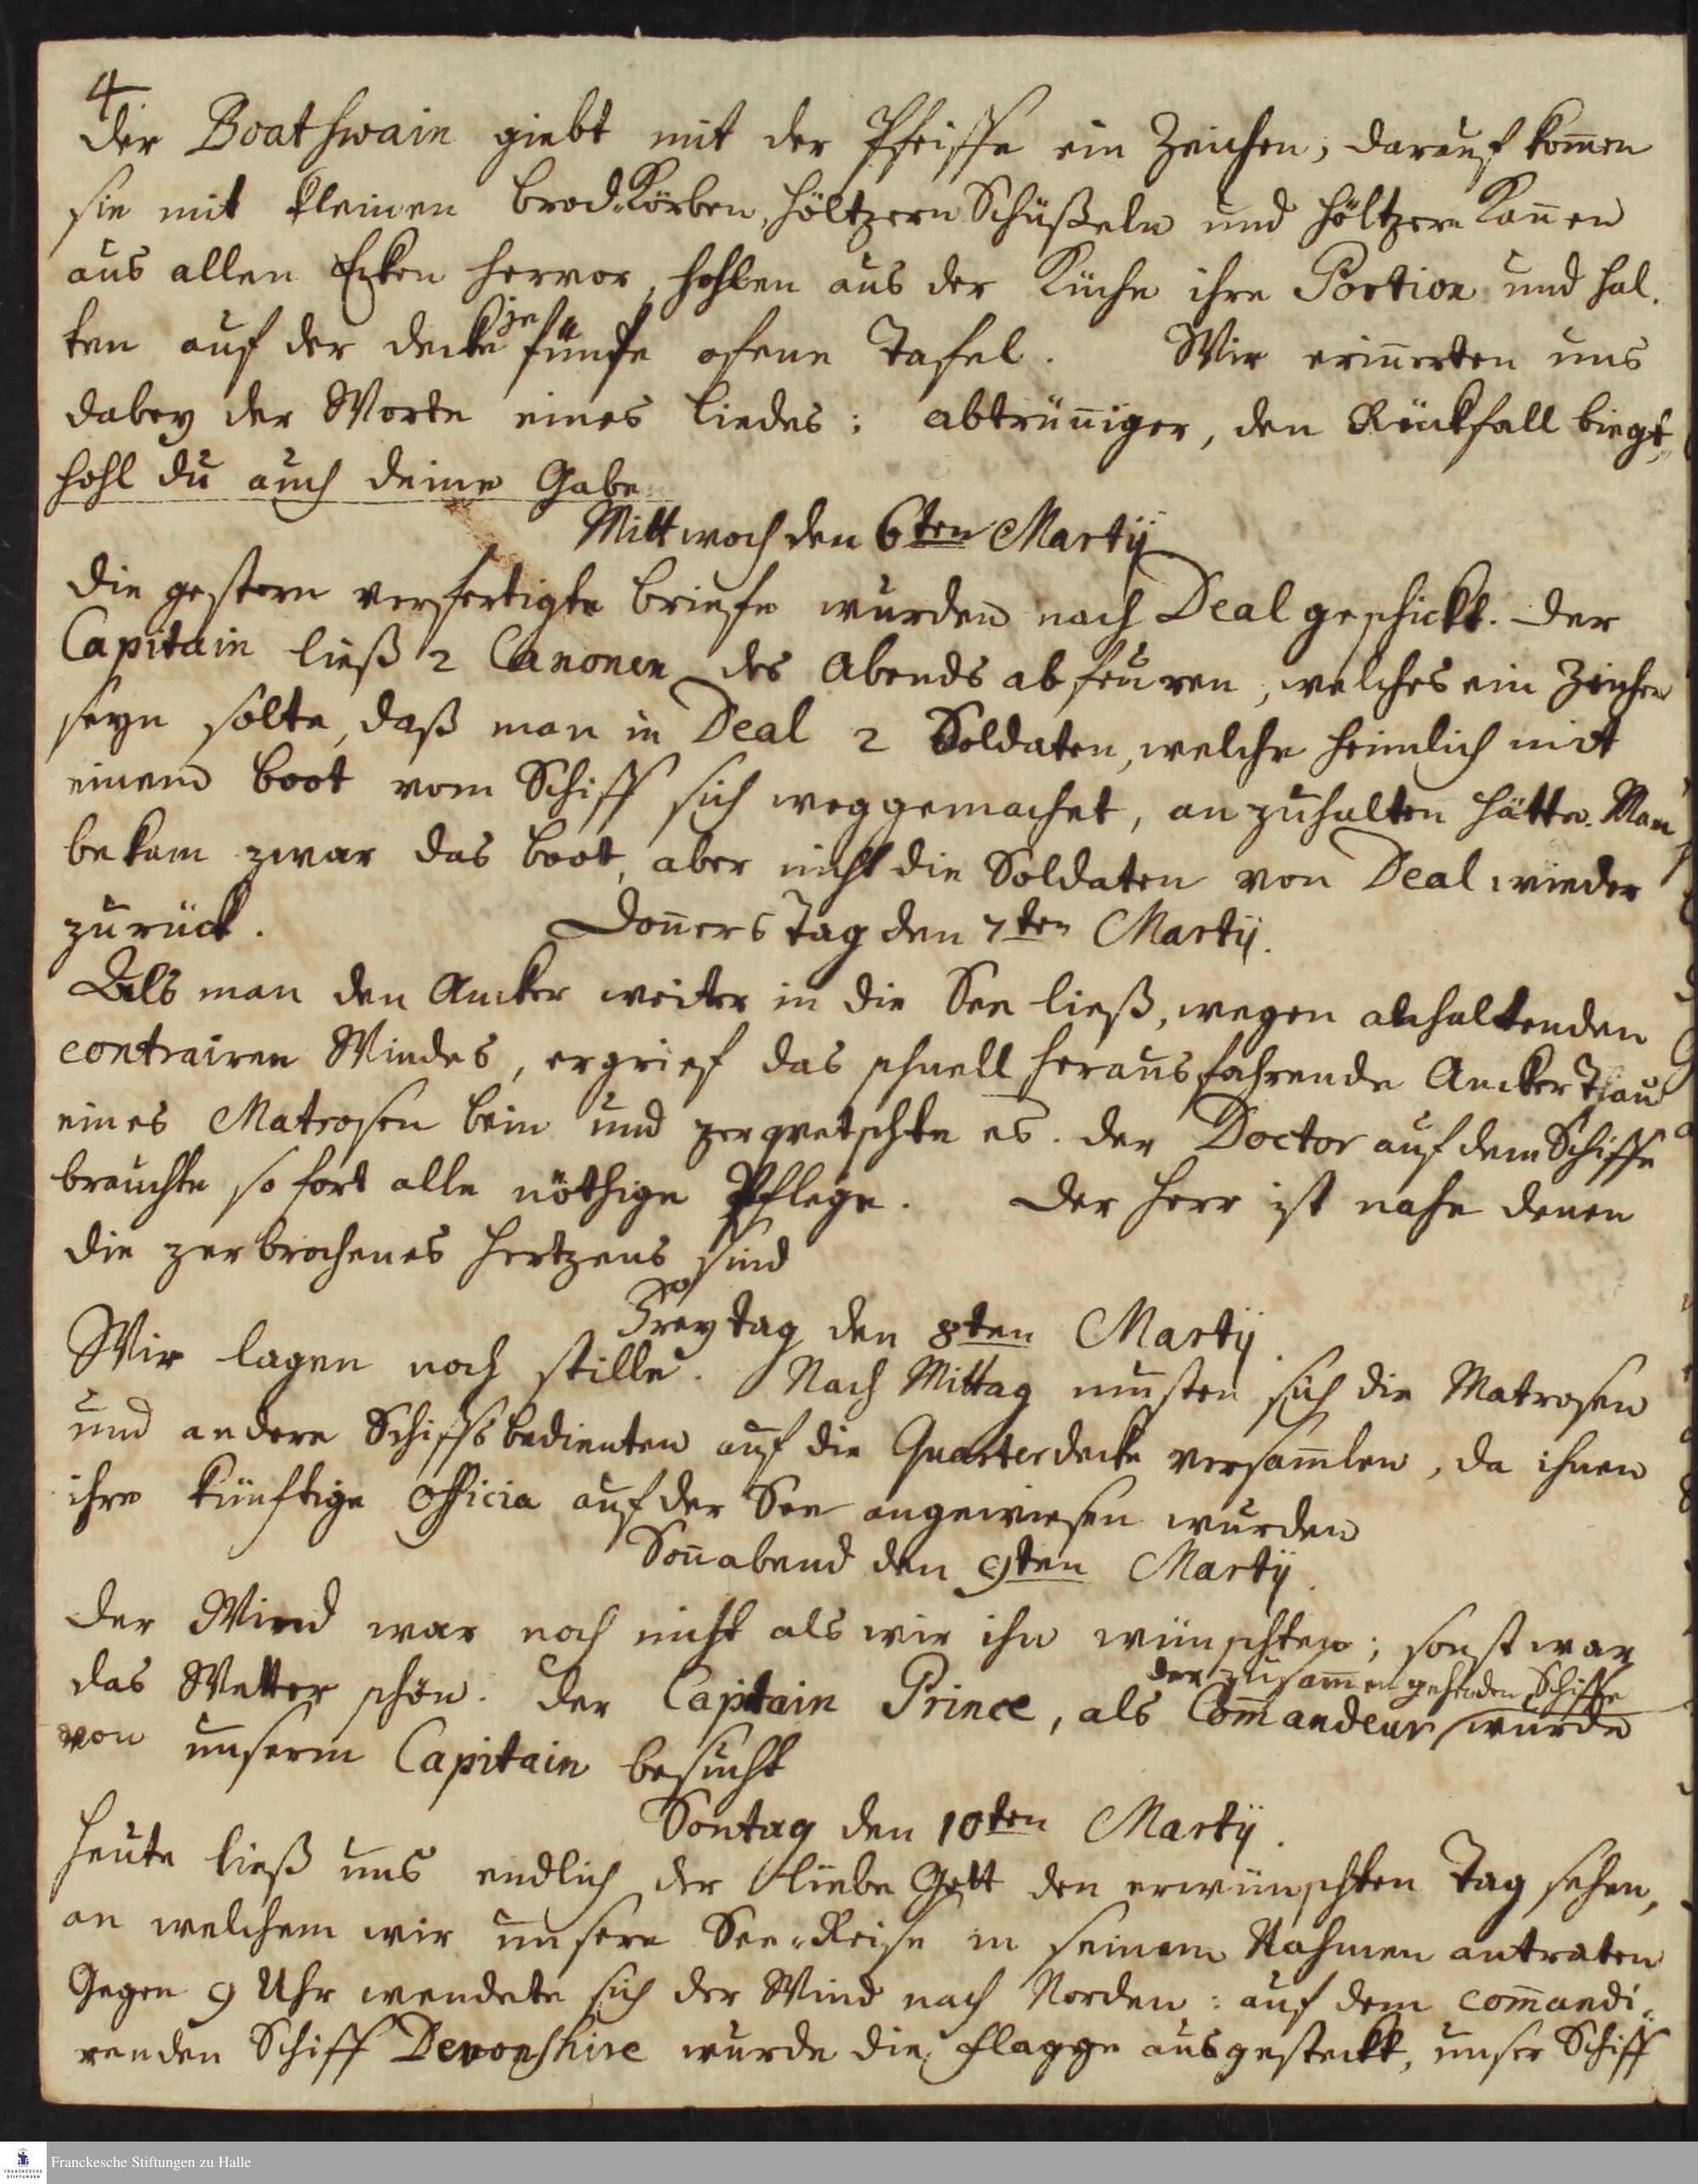 4
Der Boatshwain giebt mit der Pfeiffe ein Zeichen, darauf kom̄en
sie mit kleinen Brod-Körben, höltzern Schüßeln und höltzern Kan̄en
aus allen Ecken hervor, hohlen aus der Küche ihre Portion und hal-
ten auf der Decke je fünfe ofene Tafel. Wir erin̄erten uns
dabey der Worte eines Liedes: Abtrün̄iger, den Rückfall biegt,
hohl du auch deine Gabe
Mittwoch den 6ten Martij
Die gestern verfertigte Briefe wurden nach Deal geschickt. Der
Capitain ließ 2 Canonen des Abends abfeuren, welches ein Zeichen
seyn solte, daß man in Deal 2 Soldaten, welche heimlich mit
einem Boot vom Schiff sich weggemachet, anzuhalten hätte. Man
bekam zwar das Boot, aber nicht die Soldaten von Deal wieder
zurück. Don̄ersTag den 7ten Martij.
Als man den Ancker weiter in die See ließ, wegen anhaltenden
contrairen Windes, ergrief das schnell herausfahrende Ancker Thau
eines Matrosen Bein und zerqvetschte es. Der Doctor auf dem Schiffe
brauchte sofort alle nöthige Pflege. Der Herr ist nahe denen
die zerbrochenes Hertzens sind
Freytag den 8ten Martij.
Wir lagen noch stille. Nach Mittag musten sich die Matrosen
und andere Schiffsbedienten auf die Quarterdecke versam̄len, da ihnen
ihre künftige Officia auf der See angewiesen wurden
Son̄abend den 9ten Martij.
Der Wind war noch nicht als wir ihn wünschten; sonst war
das Wetter schön. Der Capitain Prince, als Com̄andeur der zusam̄engehenden Schiffe wurde
von unserm Capitain besucht
Sontag den 10ten Martij.
Heute ließ uns endlich der liebe Gott den erwünschten Tag sehen,
an welchem wir unsere See-Reise in seinem Nahmen antraten
Gegen 9 Uhr wendete sich der Wind nach Norden: auf dem com̄andi-
renden Schiff Devonshire wurde die Flagge ausgesteckt, unser Schiff
Franckesche Stiftungen zu Halle